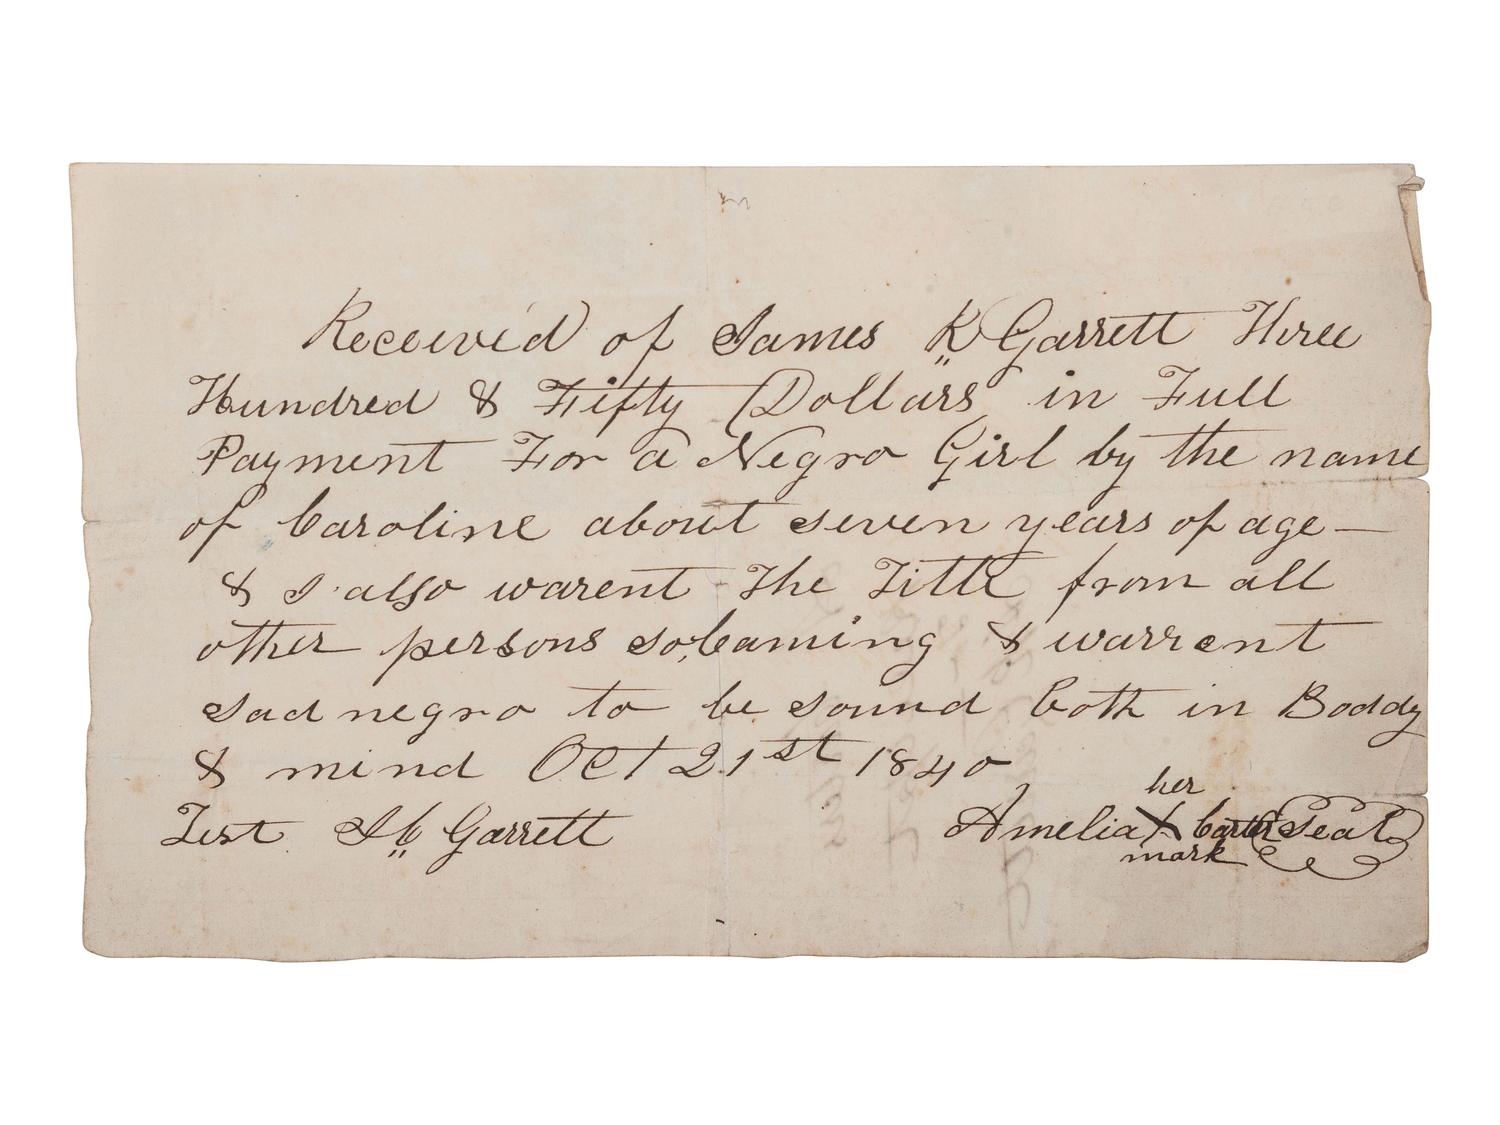 Received of James K Garrett Three
Hundred & Fifty Dollars in Full
Payment For a Negro Girl by the name
of Caroline about seven years of age —
& I also warent The Title from all
other persons so, Caming & warrent
sad negro to be sound both in Boddy
& mind Oct 21st 1840
her
Test J C Garrett Amelia X Carter Seal
mark